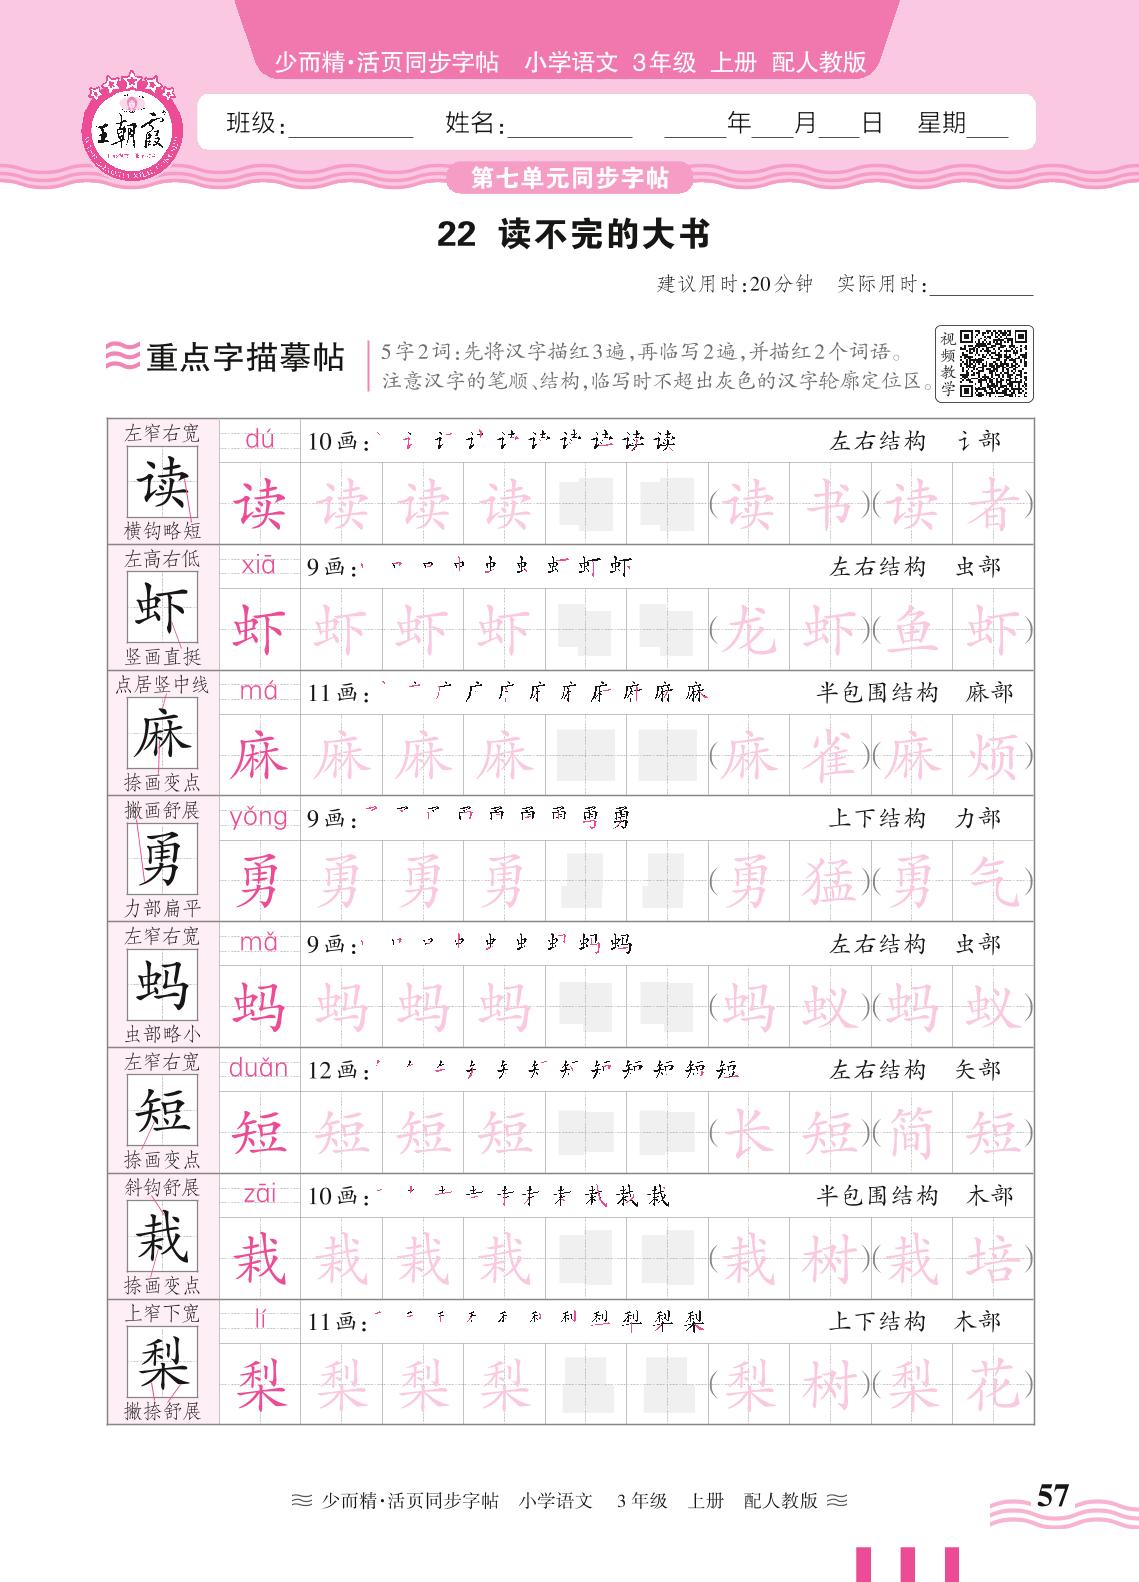 少而精·活页同步字帖 小学语文 3年级 上册 配人教版
王朝霞
班级: 姓名: 年 月 日 星期
第七单元同步字帖
22 读不完的大书
建议用时:20分钟 实际用时:
重点字描摹帖
5字2词:先将汉字描红3遍,再临写2遍,并描红2个词语。
注意汉字的笔顺、结构,临写时不超出灰色的汉字轮廓定位区。
视频教学
左窄右宽 dú 10画: 读 左右结构 讠部
读 读 读 读 读 (读书)(读者)
横钩略短
左高右低 xiā 9画: 虾 左右结构 虫部
虾 虾 虾 虾 虾 (龙虾)(鱼虾)
竖画直挺
点居竖中线 má 11画: 麻 半包围结构 麻部
麻 麻 麻 麻 麻 (麻雀)(麻烦)
捺画变点
撇画舒展 yǒng 9画: 勇 上下结构 力部
勇 勇 勇 勇 勇 (勇猛)(勇气)
力部扁平
左窄右宽 mǎ 9画: 蚂 左右结构 虫部
蚂 蚂 蚂 蚂 蚂 (蚂蚁)(蚂蚁)
虫部略小
左窄右宽 duǎn 12画: 短 左右结构 矢部
短 短 短 短 短 (长短)(简短)
捺画变点
斜钩舒展 zāi 10画: 栽 半包围结构 木部
栽 栽 栽 栽 栽 (栽树)(栽培)
捺画变点
上窄下宽 lí 11画: 梨 上下结构 木部
梨 梨 梨 梨 梨 (梨树)(梨花)
撇捺舒展
少而精·活页同步字帖 小学语文 3年级 上册 配人教版
57